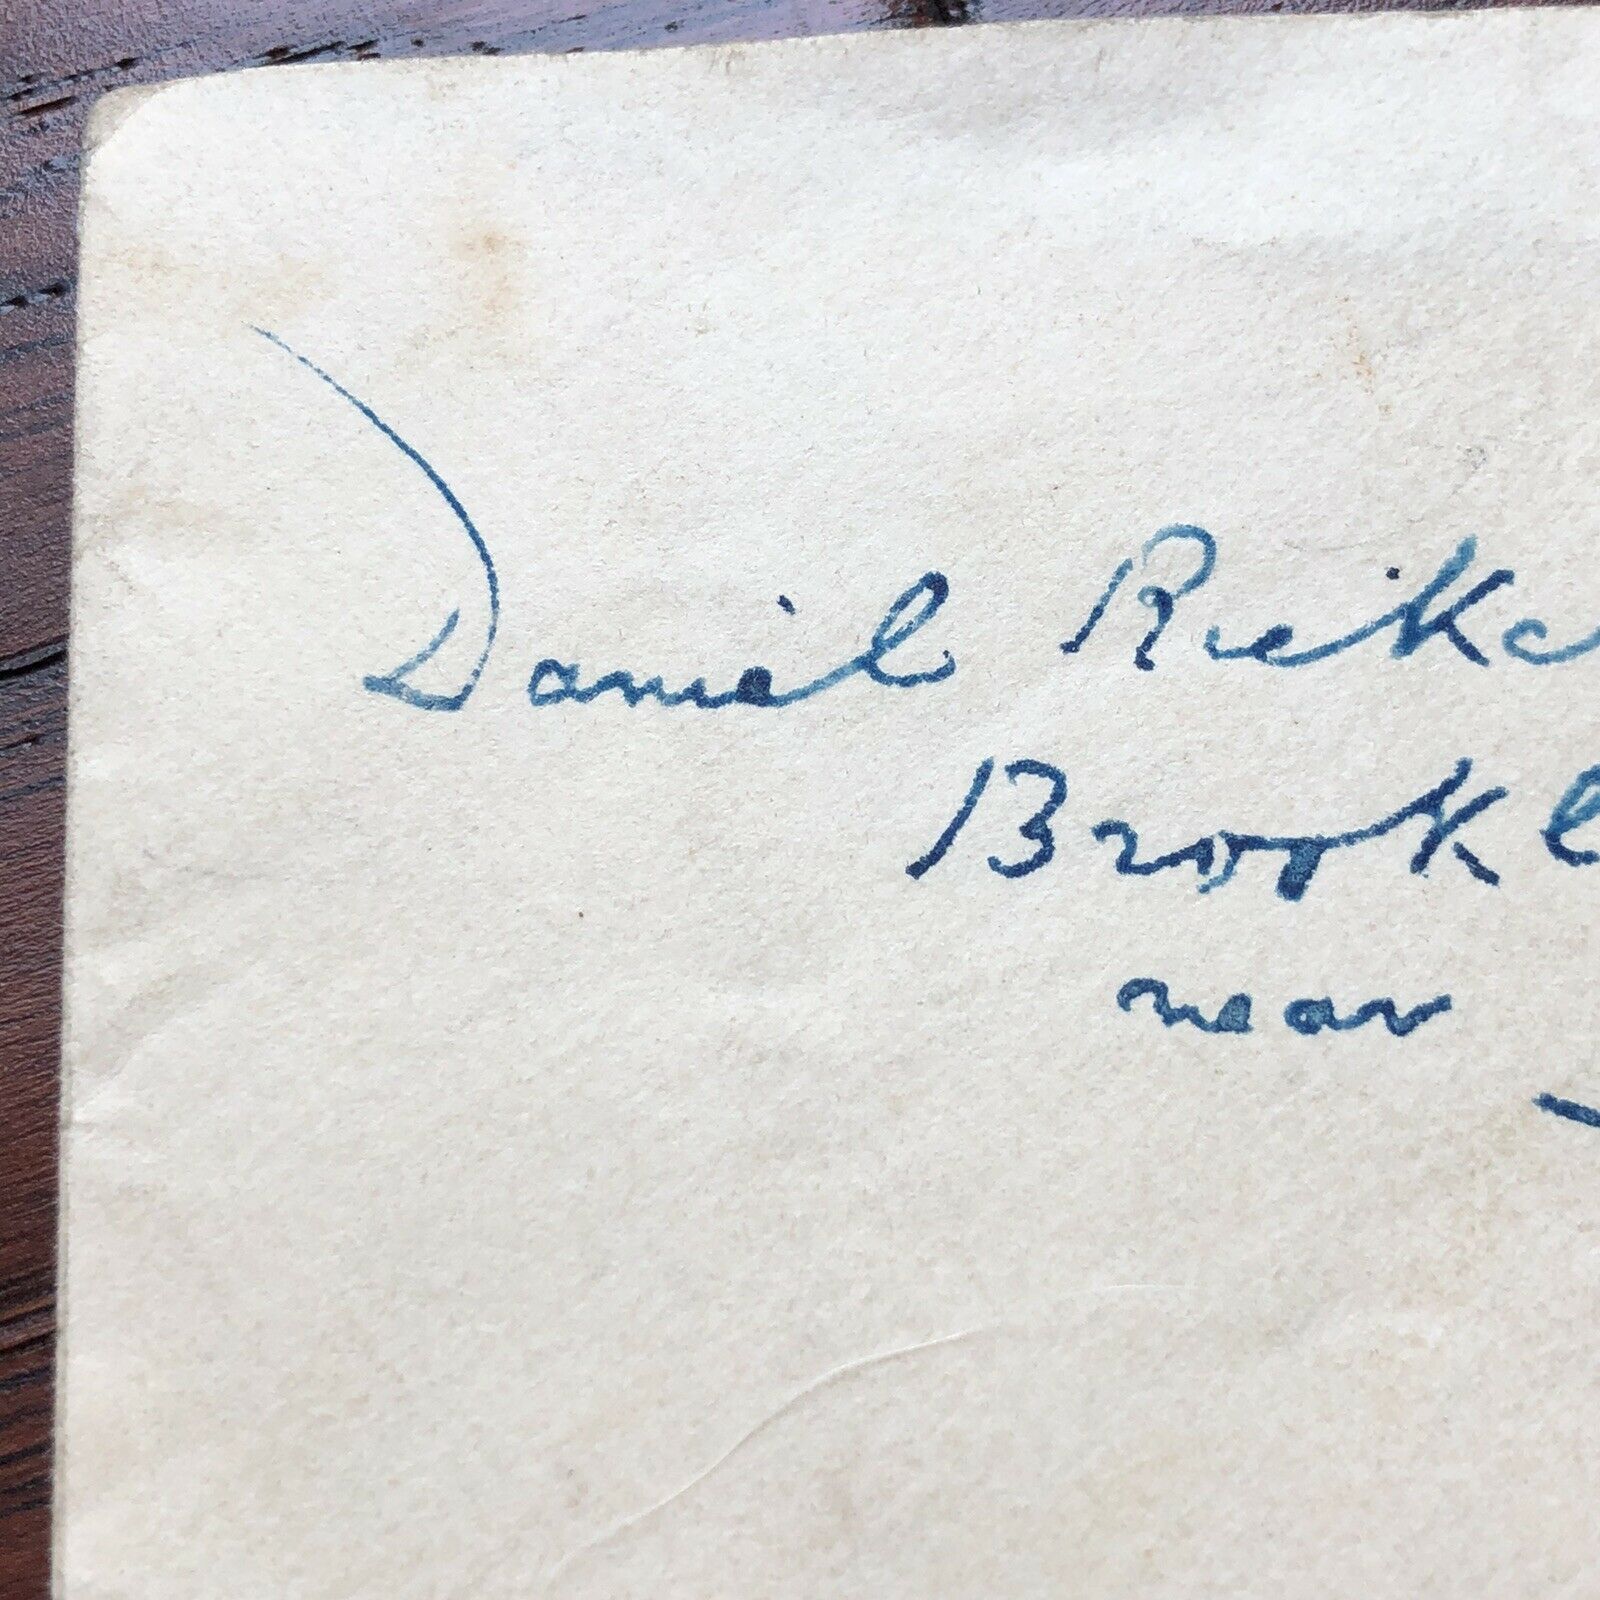 Daniel Ricke
Brookl
near